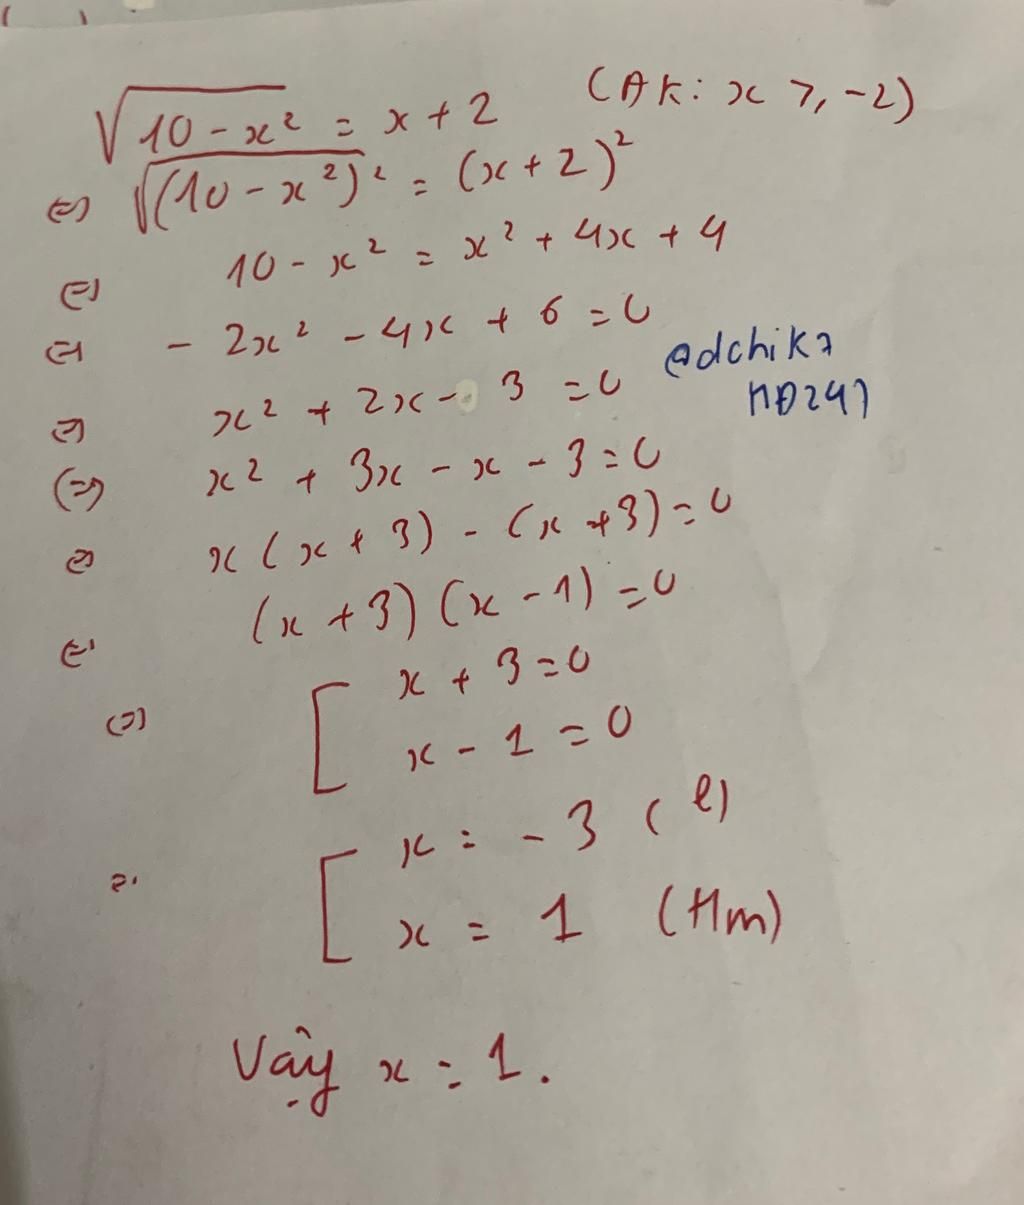 √10 - x² = x + 2 (ĐK: x ≥ -2)
⇔ √(10 - x²)² = (x + 2)²
⇔ 10 - x² = x² + 4x + 4
⇔ - 2x² - 4x + 6 = 0
⇔ x² + 2x - 3 = 0
@dchik7
⇔ x² + 3x - x - 3 = 0
⇔ x(x + 3) - (x + 3) = 0
⇔ (x + 3)(x - 1) = 0
⇔ [ x + 3 = 0
x - 1 = 0
⇔ [ x = - 3 (l)
x = 1 (tm)
Vậy x = 1.